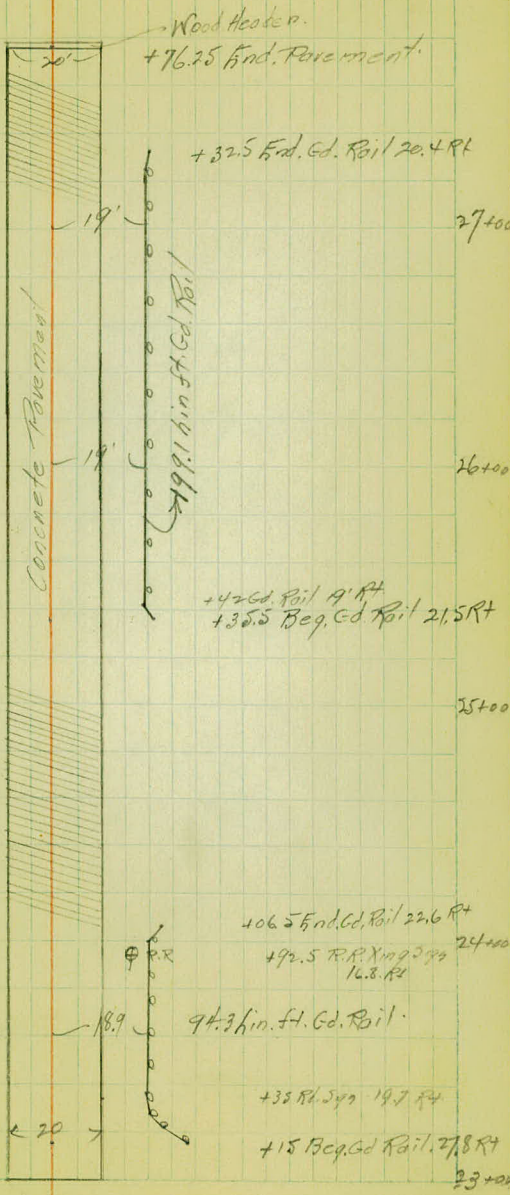 Wood Header.
20'
+76.25 End. Pavement.
+32.5 End. Gd. Rail 20.4 Rt
27+00
19'
199.1 Lin. ft. Gd. Rail
Concrete Pavement
19'
26+00
+42 Gd. Rail 19' Rt
+35.5 Beg. Gd. Rail 21.5 Rt
25+00
+06.5 End. Gd. Rail 22.6 Rt
24+00
R.R
+92.5 R.R. Xing Sgn
16.8 Rt
18.9
94.3 Lin. ft. Gd. Rail.
+35 Rd. Sgn 19.7 Rt
20
+15 Beg. Gd Rail. 27.8 Rt
23+00